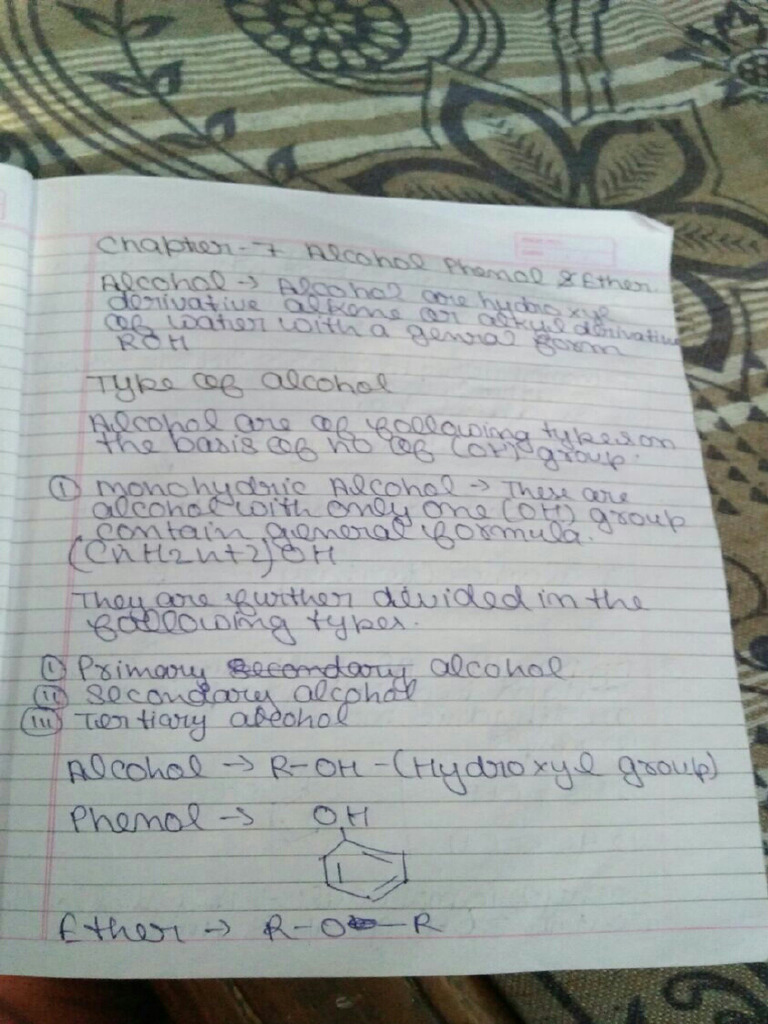 Chapter-7 Alcohol Phenol & Ether.
Alcohol → Alcohol are hydroxyl
derivative alkane or alkyl derivative
of water with a genral form
ROH
Type of alcohol
Alcohol are of following types on
the basis of no of (OH) group.
① Monohydric Alcohol → These are
alcohol with only one (OH) group
contain general formula.
(CnH2n+2)OH
They are further divided in the
following types.
① Primary secondary alcohol
② Secondary alcohol
③ Tertiary alcohol
Alcohol → R-OH-(Hydroxyl group)
Phenol → OH
Ether → R-O-R